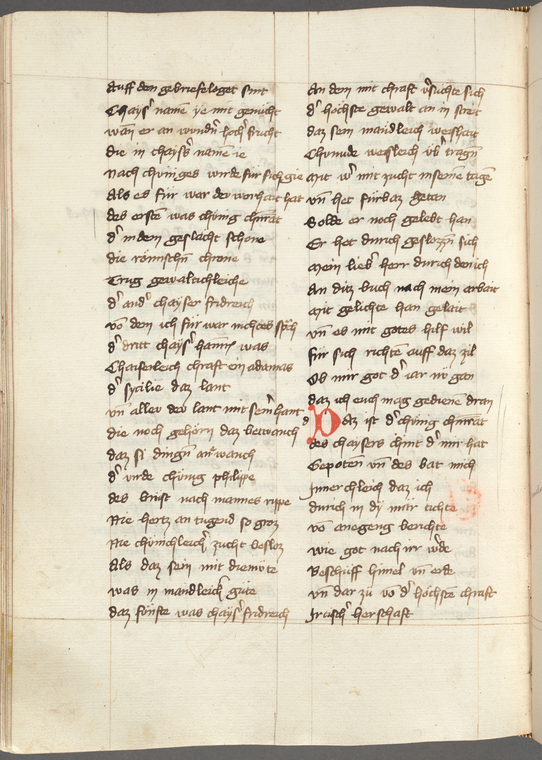 Auff den gebriefe loget sint
Chaysʼ name ye mit genücht
wan er an wirdn̄ hochʼ frucht
die in chaysʼs name ie
nach chuniges wirde für sich gie
Als es für war der worhait hat
des ersten was chönig chūrat
dʼ in dem geslacht schone
die römischn̄ chrone
Trug gewaltichleiche
dʼ andʼ chayser fridreich
võ dem ich für war niches spch
dʼ dritt chaysʼ hainrʼ was
Chaiserleich chraft en adamas
dʼ sycilie daz lant
vn̄ aller der lant mit seinʼ hant
die noch gehörn̄ daz betwanch
daz si dingn̄ an wanch
dʼ virde chönig philippe
des brust nach mannes rippe
Nie hertz an tugend so groz
Nie chönichleichʼ zucht besloz
Als daz sein mit diemöte
was in mandleichʼ güte
daz fünfte was chaysʼ fridreich
An dem mit chraft vʼsuchte sich
dʼ höchste gewalt an in streit
daz sein mandleich weishait
Chunnde weisleich vbʼ tragn̄
Mit wʼ mit zucht in seinē tagē
vn̄ het fürbaz getan
Solde er noch gelebt han
Er het durich geslozzn̄ sich
Mein liebʼ herr durich den ich
An ditz buch nach mein erbait
Mit gelichte han gelait
vn̄ es mit gotes hilf wil
für sich richten auff daz zil
Ob mir got dʼ iar nv gan
daz ich euch mag gediene dran
Daz ist dʼ chönig chūnrat
des chaysers chint dʼ mir hat
Gepoten vn̄ des bat mich
Innerchleich daz ich
durich in dÿ mär tichte
võ anegeng berichte
wie got nach irʼ wʼde
Beschüff himel vn̄ erde
vn̄ dar zü võ dʼ höchste chraft
Irdischʼ herschaft